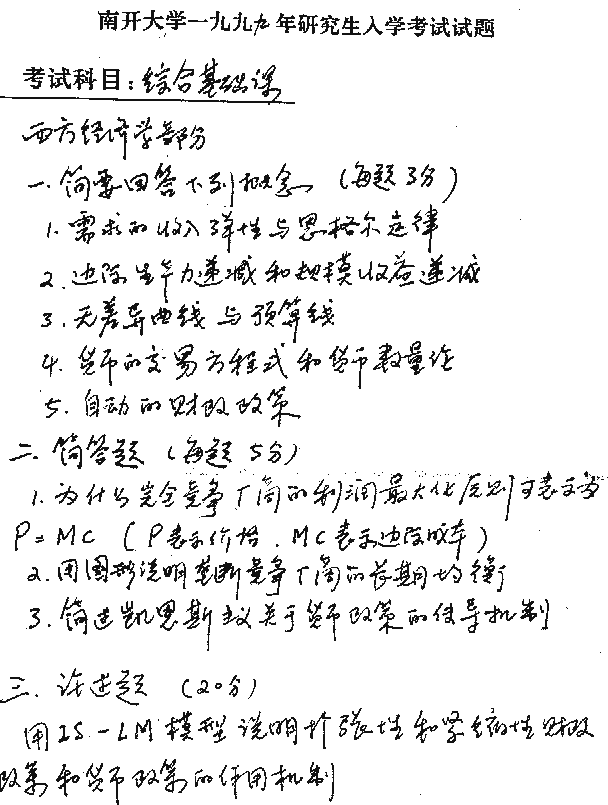 南开大学一九九九年研究生入学考试试题
考试科目：综合基础课
西方经济学部分
一.简要回答下列概念（每题3分）
1.需求的收入弹性与恩格尔定律
2.边际生产力递减和规模收益递减
3.无差异曲线与预算线
4.货币的交易方程式和货币数量论
5.自动的财政政策
二.简答题（每题5分）
1.为什么完全竞争厂商的利润最大化原则可表示为
P=MC（P表示价格.MC表示边际成本）
2.用图形说明垄断竞争厂商的长期均衡
3.简述凯恩斯主义关于货币政策的传导机制
三.论述题（20分）
用IS-LM模型说明扩张性和紧缩性财政
政策和货币政策的作用机制